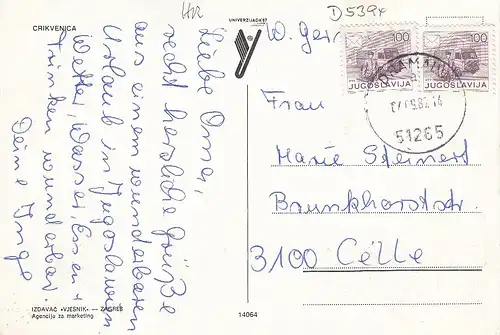 HR
D5394
CRIKVENICA
UNIVERZIJADA'87
W. Ger
100
JUGOSLAVIJA
100
JUGOSLAVIJA
51265
Liebe Oma,
recht herzliche Grüße
aus einem wunderbaren
Urlaub in Jugoslawien.
Wetter, Wasser, Essen +
Trinken wunderbar.
Deine Inge
Frau
Marie Steinert
Brunkhorststr.
3100 Celle
IZDAVAČ »VJESNIK« — ZAGREB
Agencija za marketing
14064